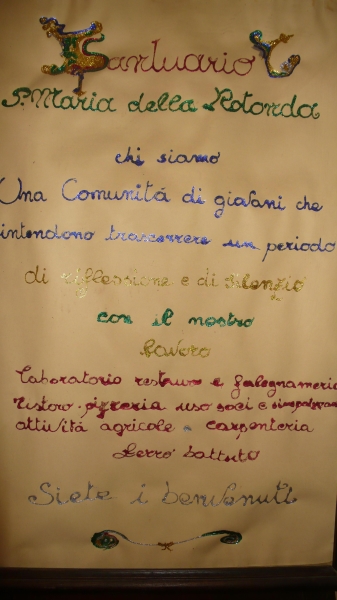 Santuario
S. Maria della Rotonda
chi siamo
Una Comunitá di giovani che
intendono trascorrere un periodo
di riflessione e di silenzio
con il nostro
lavoro
Laboratorio restauro e falegnameria
Ristoro-pizzeria uso soci e simpatizzanti
attivitá agricole - carpenteria
ferro battuto
Siete i benvenuti